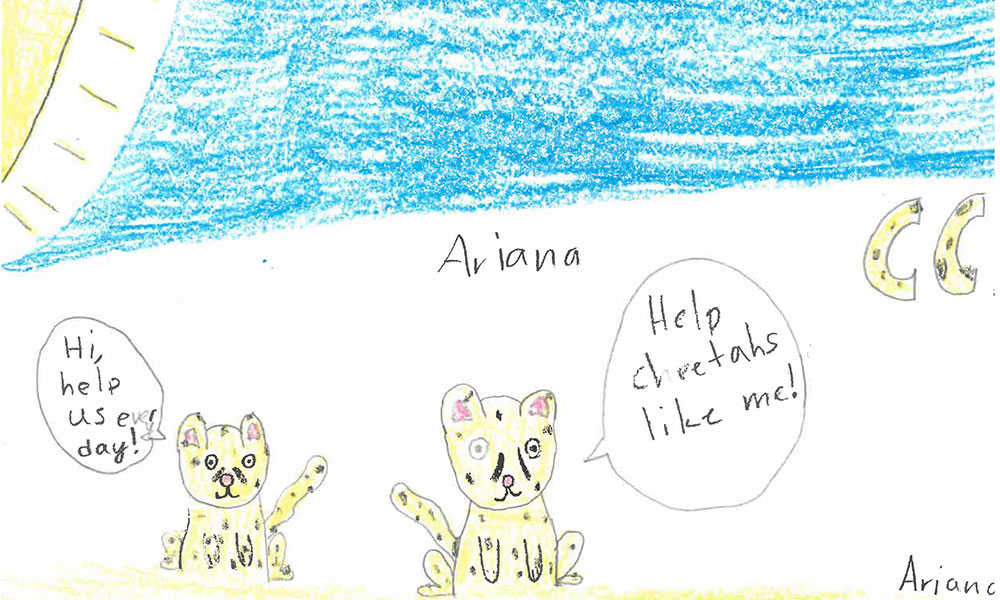 Ariana
CC
Hi,
help
us every
day!
Help
cheetahs
like me!
Ariana